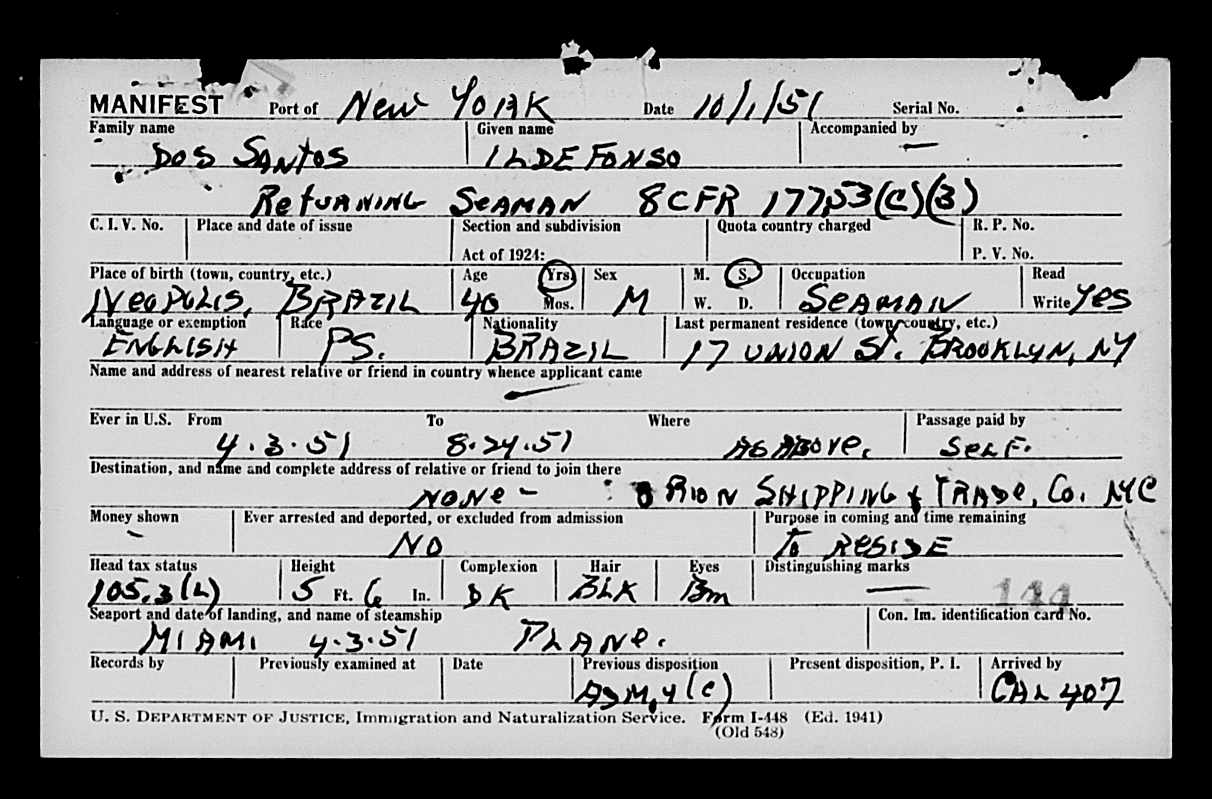 MANIFEST Port of New York Date 10/1/51 Serial No.
Family name Given name Accompanied by
Dos Santos ILDEFONSO —
Returning Seaman 8 CFR 177.53(C)(3)
C. I. V. No. Place and date of issue Section and subdivision Quota country charged R. P. No.
Act of 1924: P. V. No.
Place of birth (town, country, etc.) Age Yrs. Sex M. S. Occupation Read
Neopolis, BRAZIL 40 Mos. M W. D. SEAMAN Write Yes
Language or exemption Race Nationality Last permanent residence (town, country, etc.)
ENGLISH PS. BRAZIL 17 UNION ST. BROOKLYN, NY
Name and address of nearest relative or friend in country whence applicant came
—
Ever in U.S. From To Where Passage paid by
4.3.51 8.24.51 AS ABOVE. SELF.
Destination, and name and complete address of relative or friend to join there
NONe - ORION SHIPPING & TRADe, Co. NYC
Money shown Ever arrested and deported, or excluded from admission Purpose in coming and time remaining
- NO To RESIDE
Head tax status Height Complexion Hair Eyes Distinguishing marks
105.3(L) 5 Ft. 6 In. DK BLK Bm — 144
Seaport and date of landing, and name of steamship Con. Im. identification card No.
MIAMI 4.3.51 PLANe.
Records by Previously examined at Date Previous disposition Present disposition, P. I. Arrived by
ADM.4(c) CAL 407
U. S. DEPARTMENT OF JUSTICE, Immigration and Naturalization Service. Form I-448 (Ed. 1941)
(Old 548)